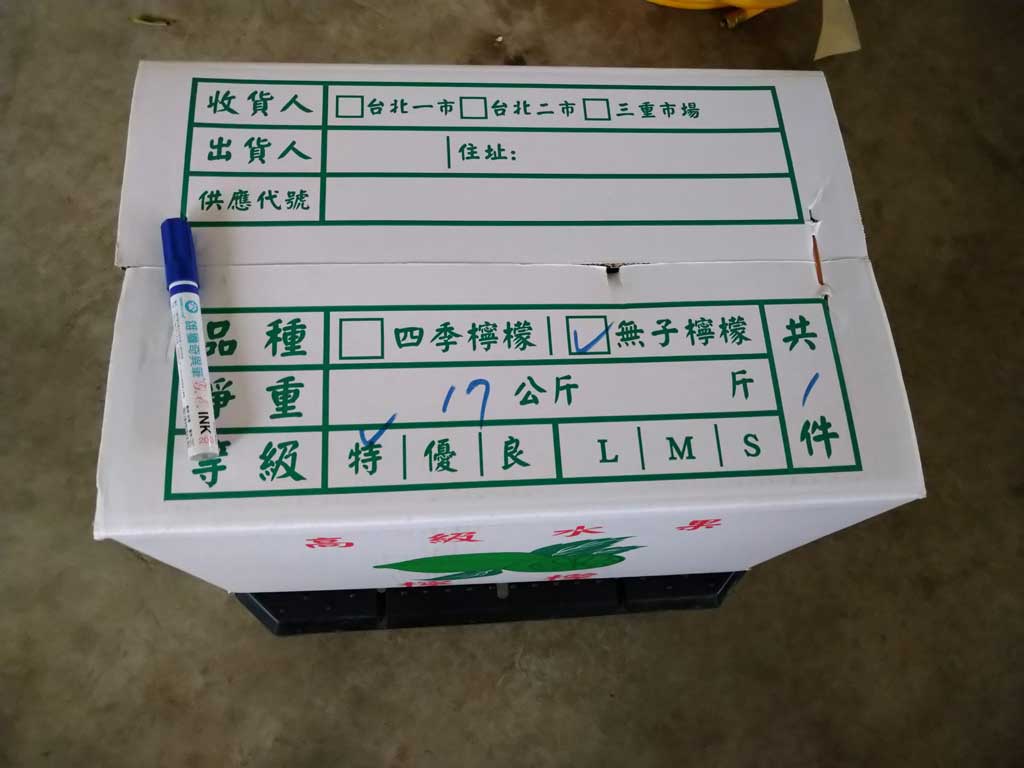 收貨人 □台北一市 □台北二市 □三重市場
出貨人 住址:
供應代號
品種 □四季檸檬 ☑無子檸檬
淨重 17公斤 斤
等級 ✓特 優 良 L M S
共1件
高級水果
INK